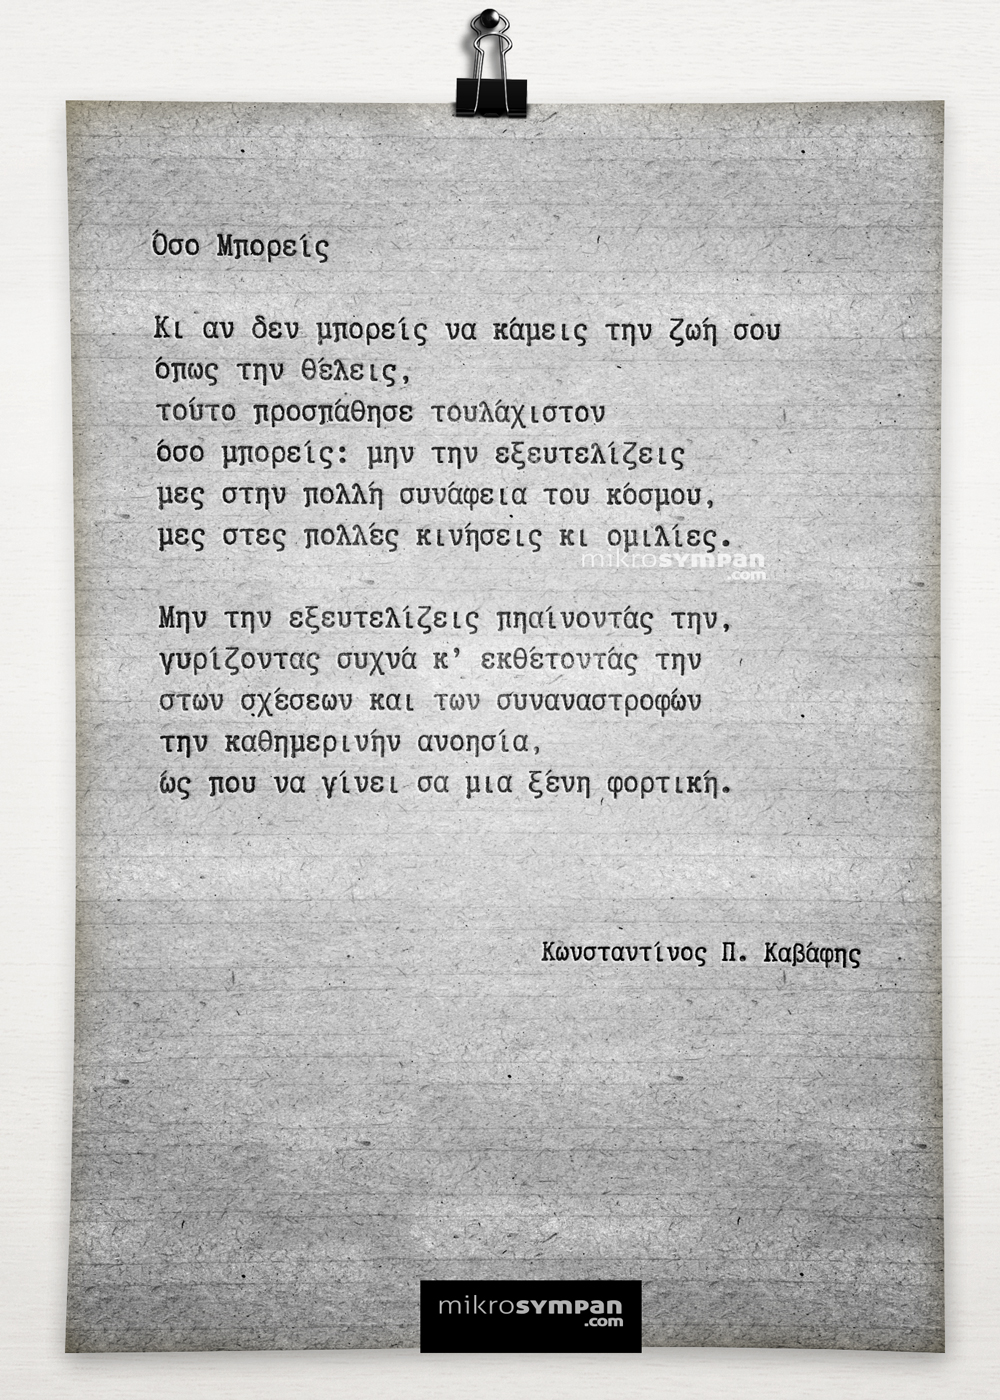 Όσο Μπορείς
Κι αν δεν μπορείς να κάμεις την ζωή σου
όπως την θέλεις,
τούτο προσπάθησε τουλάχιστον
όσο μπορείς: μην την εξευτελίζεις
μες στην πολλή συνάφεια του κόσμου,
μες στες πολλές κινήσεις κι ομιλίες.
mikrosympan
.com
Μην την εξευτελίζεις πηαίνοντάς την,
γυρίζοντας συχνά κ' εκθέτοντάς την
στων σχέσεων και των συναναστροφών
την καθημερινήν ανοησία,
ώς που να γίνει σα μια ξένη φορτική.
Κωνσταντίνος Π. Καβάφης
mikrosympan
.com